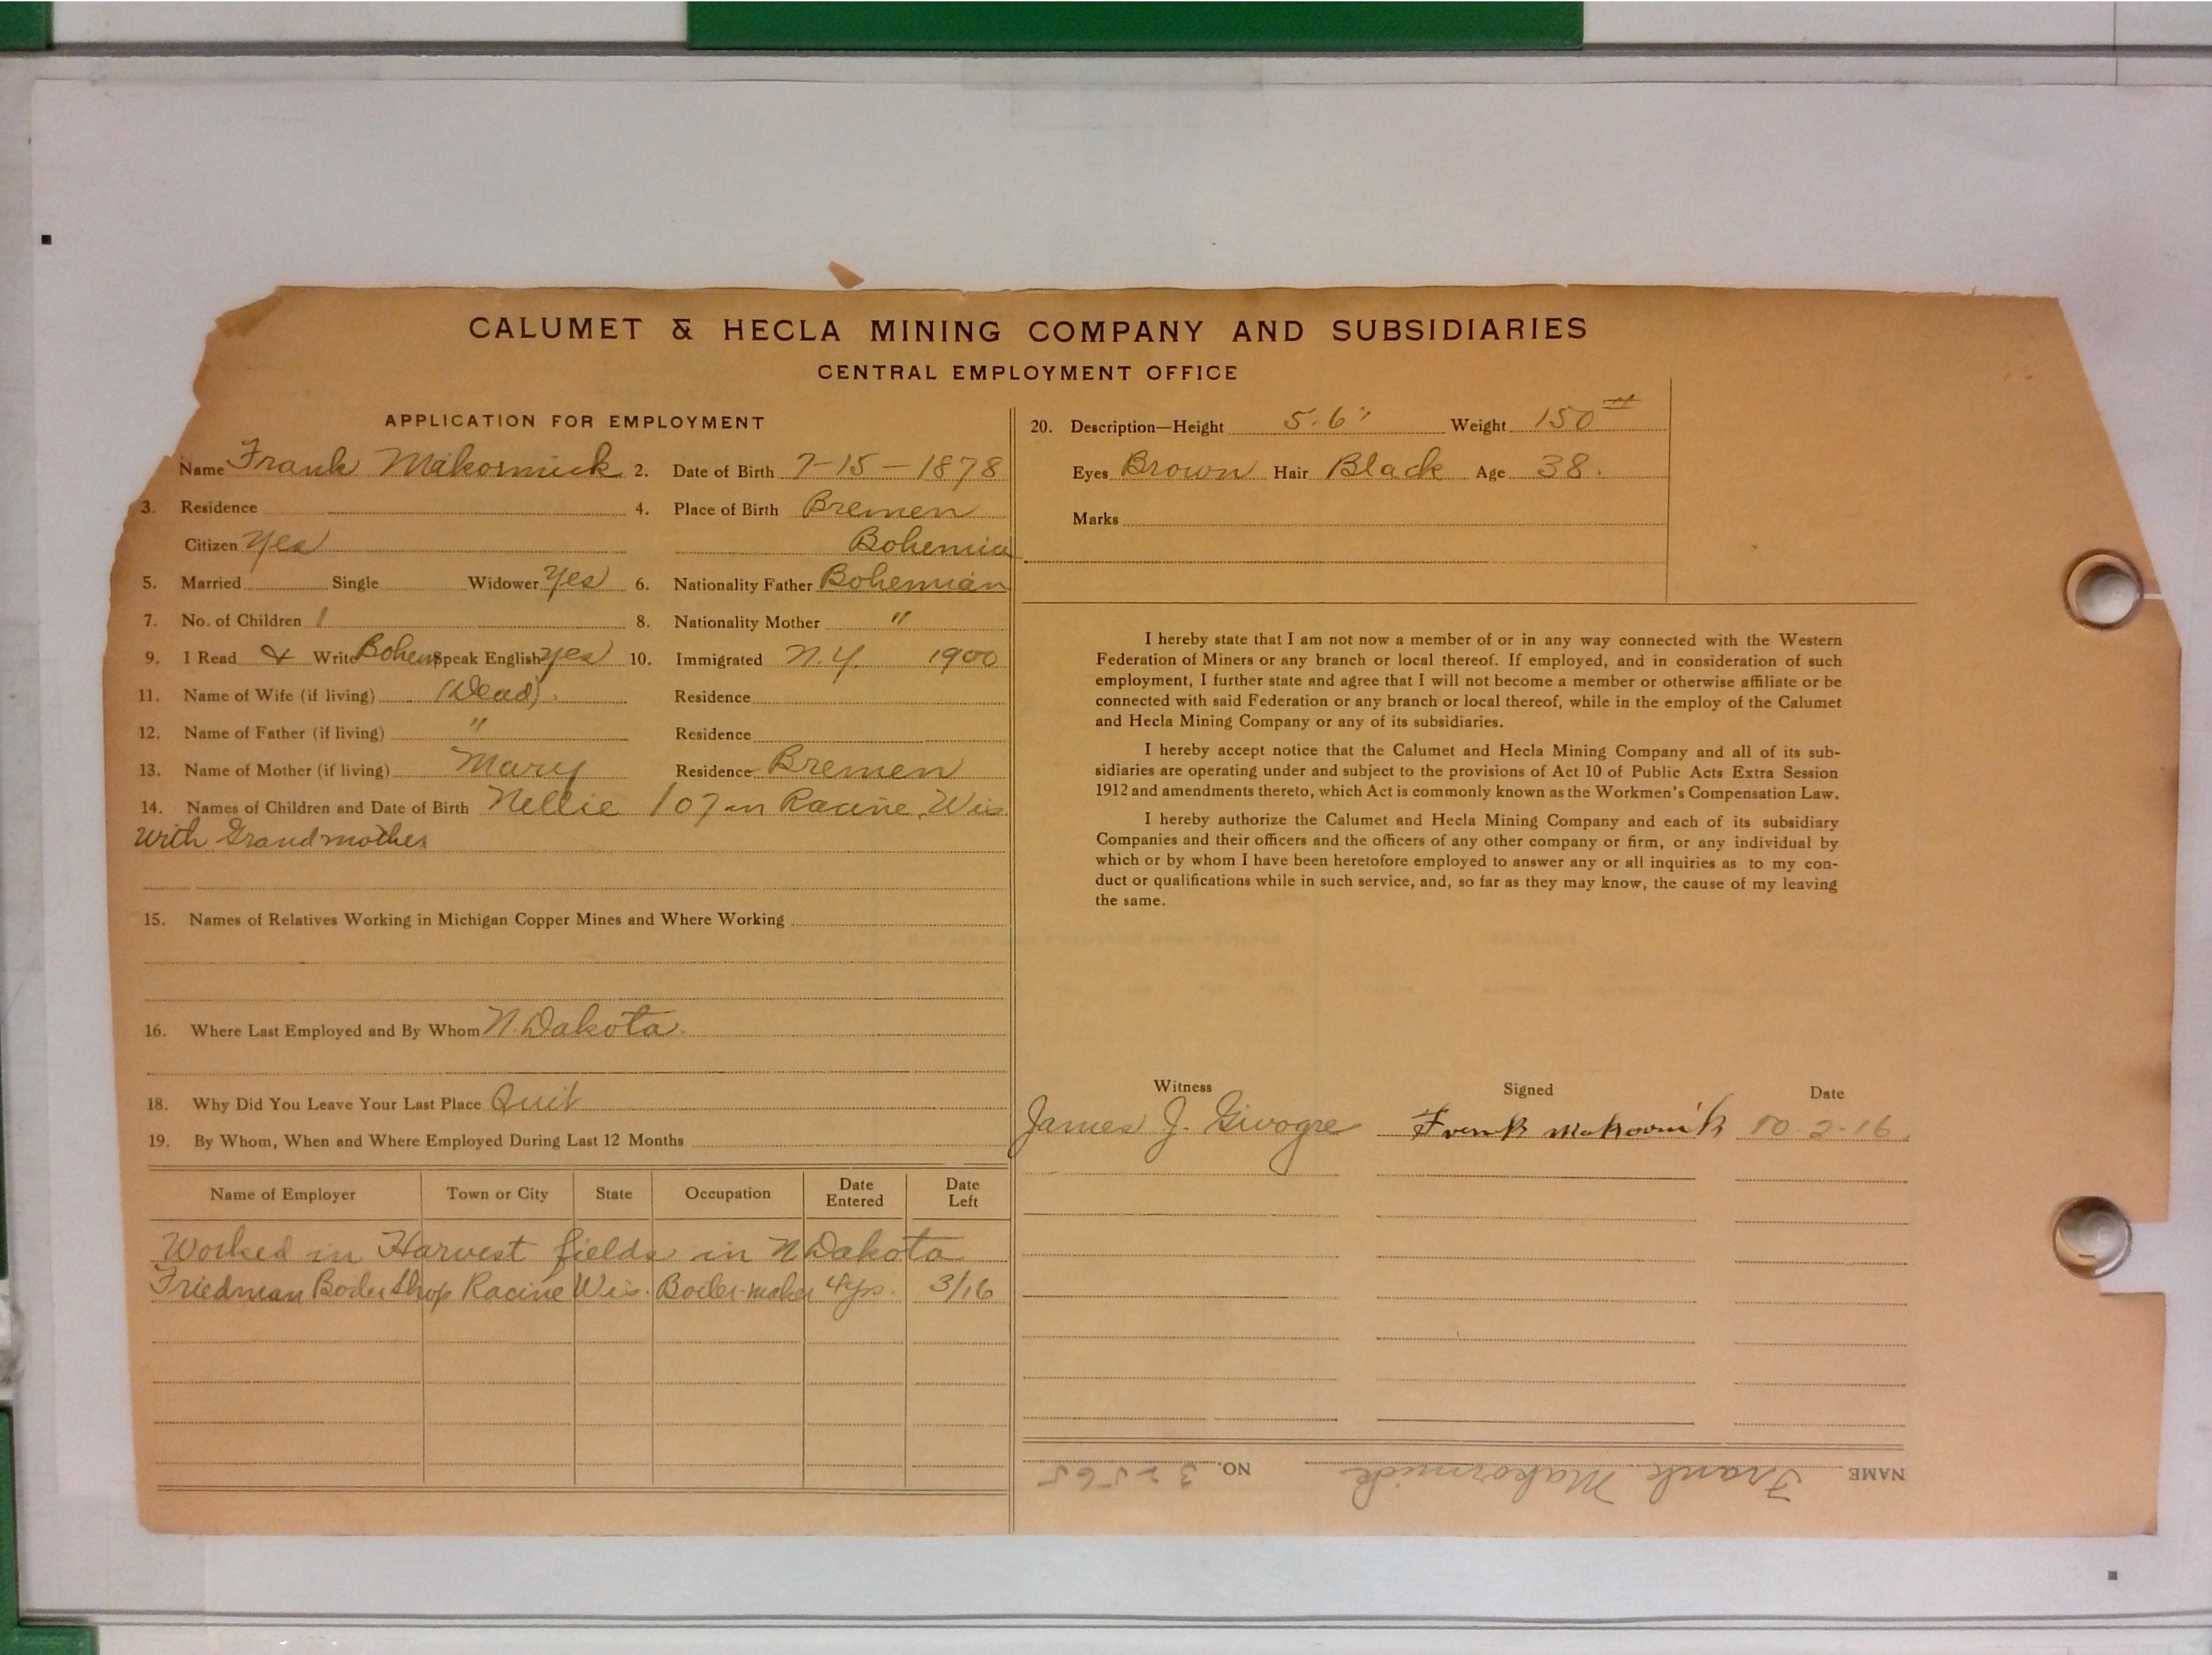 CALUMET & HECLA MINING COMPANY AND SUBSIDIARIES
CENTRAL EMPLOYMENT OFFICE
APPLICATION FOR EMPLOYMENT
Name Frank Makormick 2. Date of Birth 7-15-1878
3. Residence 4. Place of Birth Bremen
Citizen Yes Bohemia
5. Married Single Widower Yes 6. Nationality Father Bohemian
7. No. of Children 1 8. Nationality Mother "
9. I Read & Write Bohem Speak English yes 10. Immigrated N.Y. 1900
11. Name of Wife (if living) (Dead). Residence
12. Name of Father (if living) " Residence
13. Name of Mother (if living) Mary Residence Bremen
14. Names of Children and Date of Birth Nellie in Racine, Wis.
with Grandmother
15. Names of Relatives Working in Michigan Copper Mines and Where Working
16. Where Last Employed and By Whom N. Dakota.
18. Why Did You Leave Your Last Place Quit
19. By Whom, When and Where Employed During Last 12 Months
Name of Employer Town or City State Occupation Date Entered Date Left
Worked in Harvest fields in N Dakota
Friedman Boiler Shop Racine Wis. Boiler-maker 4yrs. 3/16
20. Description—Height 5'.6" Weight 150 #
Eyes Brown Hair Black Age 38.
Marks
I hereby state that I am not now a member of or in any way connected with the Western
Federation of Miners or any branch or local thereof. If employed, and in consideration of such
employment, I further state and agree that I will not become a member or otherwise affiliate or be
connected with said Federation or any branch or local thereof, while in the employ of the Calumet
and Hecla Mining Company or any of its subsidiaries.
I hereby accept notice that the Calumet and Hecla Mining Company and all of its sub-
sidiaries are operating under and subject to the provisions of Act 10 of Public Acts Extra Session
1912 and amendments thereto, which Act is commonly known as the Workmen's Compensation Law.
I hereby authorize the Calumet and Hecla Mining Company and each of its subsidiary
Companies and their officers and the officers of any other company or firm, or any individual by
which or by whom I have been heretofore employed to answer any or all inquiries as to my con-
duct or qualifications while in such service, and, so far as they may know, the cause of my leaving
the same.
Witness Signed Date
James J. Givogre Frank Makormik 10-2-16.
NAME Frank Makormick NO. 32565